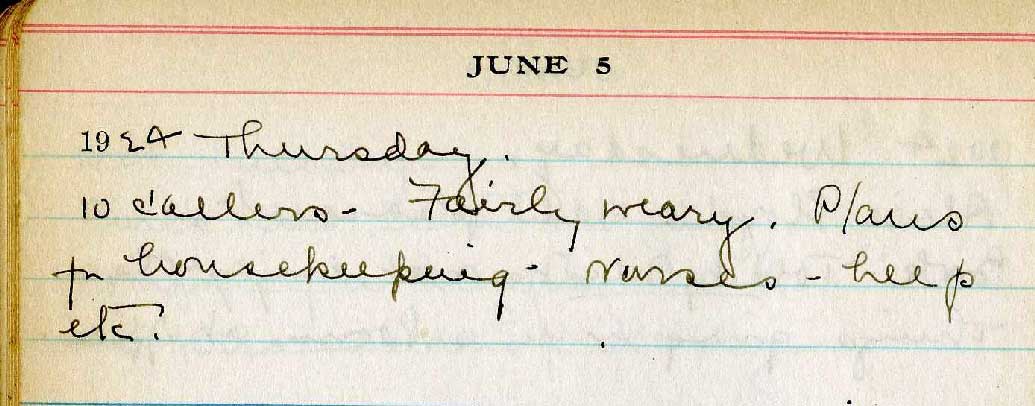 JUNE 5
1924 Thursday.
10 callers - Fairly weary. Plans
for housekeeping - nurses - help
etc.